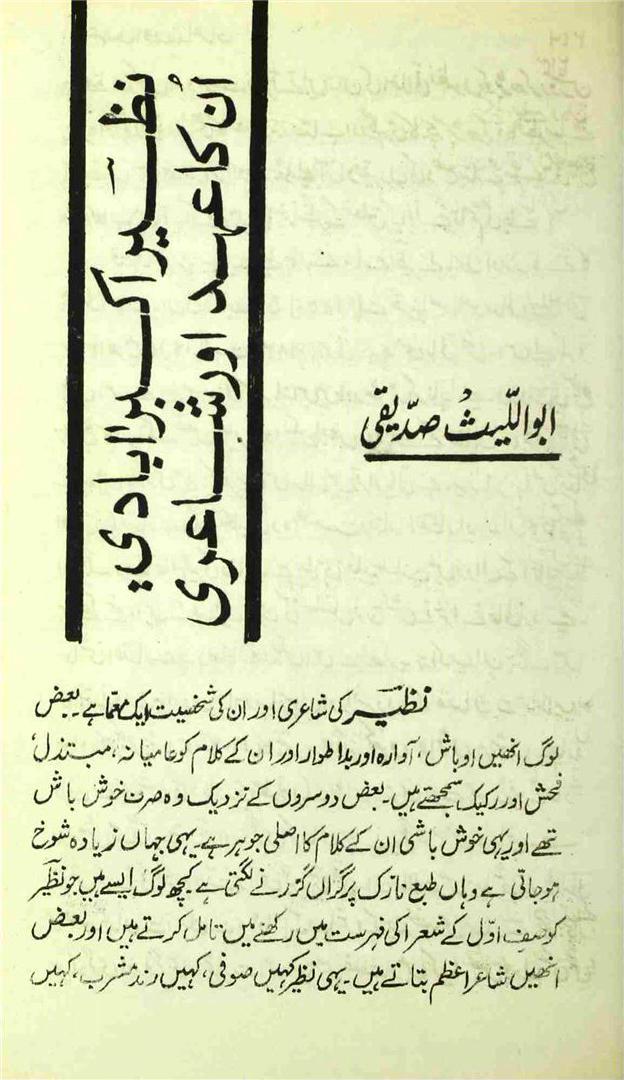 نظیر اکبر آبادی
ان کا عہد اور شاعری
ابواللّیث صدّیقی
نظیر کی شاعری اور ان کی شخصیت ایک معمّا ہے۔ بعض
لوگ انھیں اوباش، آوارہ اور بد اطوار اور ان کے کلام کو عامیانہ، مبتذل
فحش اور رکیک سمجھتے ہیں۔ بعض دوسروں کے نزدیک وہ صرف خوش باش
تھے اور یہی خوش باشی ان کے کلام کا اصلی جوہر ہے۔ یہی جہاں زیادہ شوخ
ہو جاتی ہے وہاں طبع نازک پر گراں گزرنے لگتی ہے کچھ لوگ ایسے ہیں جو نظیر
کو صفِ اوّل کے شعرا کی فہرست میں رکھنے میں تامل کرتے ہیں اور بعض
انھیں شاعر اعظم بتاتے ہیں۔ یہی نظیر کہیں صوفی، کہیں رند مشرب، کہیں